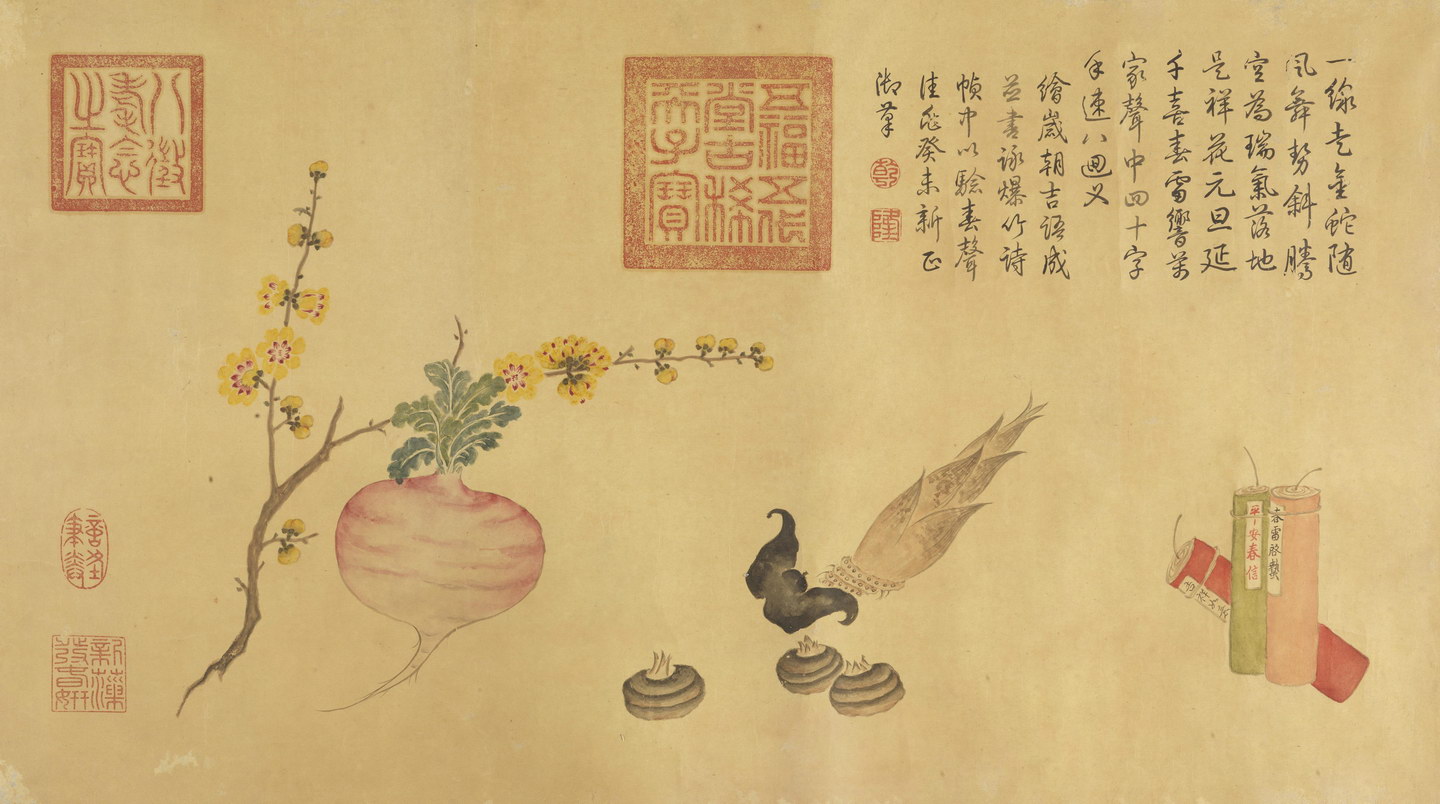 一線走金蛇随
風舞勢斜騰
空為瑞氣落地
是祥花元旦延
千喜春雷響萬
家聲中四十字
手速八迴叉
繪歲朝吉語成
並書詠爆竹詩
幀中以驗春聲
佳兆癸未新正
御筆
乾
隆
春雷啓蟄
平安春信
吉祥如意
五福五代
堂古稀
天子寶
八徵
耄念
之寶
新藻
發春妍